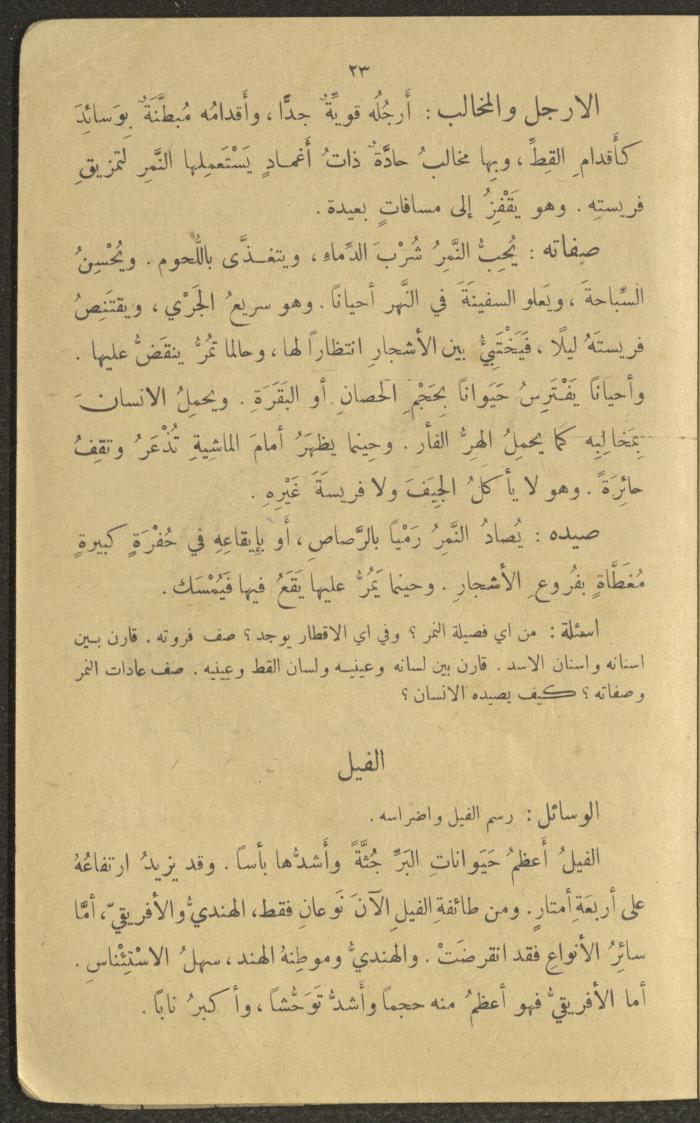 ٢٣
الارجل والمخالب : أَرجُلُه قويّةٌ جدًّا ، وأَقدامُه مُبطَّنَةٌ بِوَسائِدَ
كأَقدامِ القِطِّ ، وبِها مخالبُ حادَّةٌ ذاتُ أَغمادٍ يَسْتَعمِلها النَّمِر لتمزيقِ
فريستِه . وهو يَقْفِزُ إلى مسافاتٍ بعيدة .
صِفاته : يُحِبُّ النَّمِرُ شُرْبَ الدِّماءِ ، ويتغذَّى باللُّحوم . ويُحْسِنُ
السِّباحةَ ، ويَعلو السفينَةَ في النَّهر أحياناً . وهو سريعُ الجَرْي ، ويقتَنِصُ
فريستَهُ ليلًا ، فَيَخْتَبِئُ بين الأشجارِ انتظاراً لها ، وحالما تمُرُّ ينقَضُّ عليها .
وأحياناً يَفْتَرِسُ حَيَواناً بحَجْمِ الحصانِ أو البَقَرَةِ . ويحمِلُ الانسانَ
بِمَخالِبِه كما يحمِلُ الهِرُّ الفأر . وحِينما يظهَرُ أمامَ الماشِيةِ تُذْعَرُ وتقِفُ
حائِرَةً . وهو لا يأكلُ الجِيَفَ ولا فريسَةَ غَيْرِهِ .
صيده : يُصادُ النَّمِرُ رَمْياً بالرَّصاصِ ، أَو بإِيقاعِهِ في حُفْرَةٍ كبيرةٍ
مُغَطَّاةٍ بفُروعِ الأشجارِ . وحينما يَمُرُّ عليها يَقَعُ فيها فَيُمْسَك .
اسئلة : من اي فصيلة النمر ؟ وفي اي الاقطار يوجد ؟ صف فروته . قارن بين
اسنانه واسنان الاسد . قارن بين لسانه وعينيه ولسان القط وعينيه . صف عادات النمر
وصفاته ؟ كيف يصيده الانسان ؟
الفيل
الوسائل : رسم الفيل واضراسه .
الفيلُ أَعظمُ حَيَواناتِ البَرِّ جُثَّةً وأَشدُّها بأسا . وقد يزيدُ ارتفاعُهُ
على أربعَةِ أمتارٍ . ومن طائفةِ الفيلِ الآنَ نَوعانِ فقط ، الهنديُّ والأفريقيّ ، أمَّا
سائِرُ الأنواعِ فقد انقرضَتْ . والهنديُّ وموطِنهُ الهند ، سهلُ الاسْتِئْناسِ .
أما الأفريقيُّ فهو أعظمُ منه حجماً وأَشدُّ تَوَحُّشاً ، وأكبرُ ناباً .